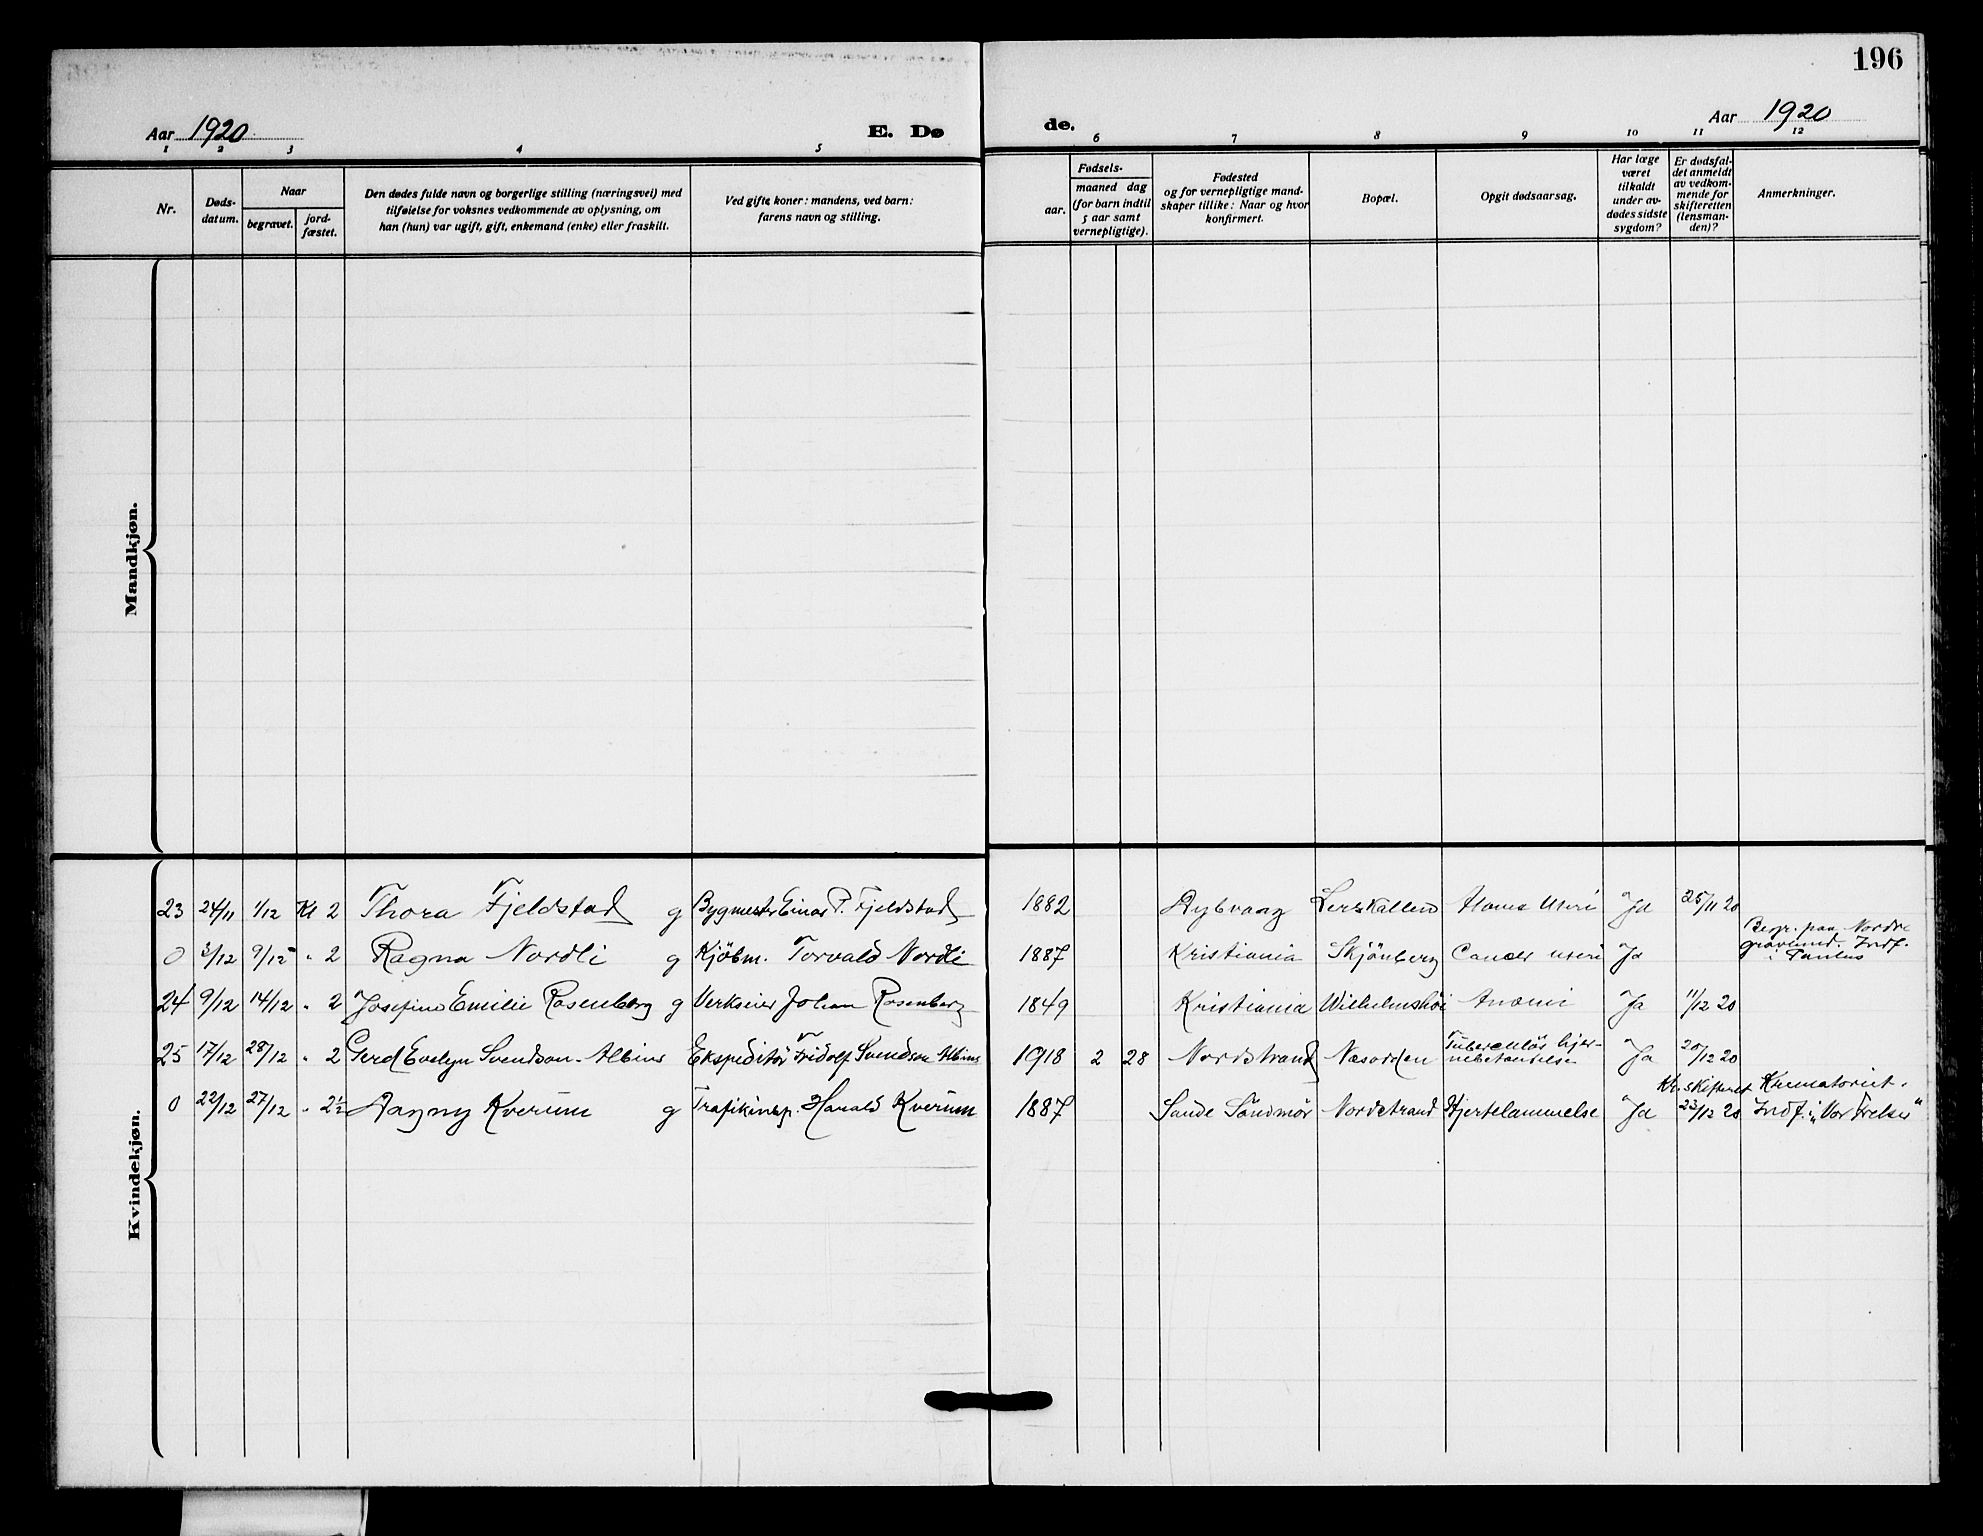 196
Aar 1920 E. Dø de. Aar 1920
1 2 3 4 5 6 7 8 9 10 11 12
Nr.
Døds-
datum.
Naar
begravet.
jord-
fæstet.
Den dødes fulde navn og borgerlige stilling (næringsvei) med
tilføielse for voksnes vedkommende av oplysning, om
han (hun) var ugift, gift, enkemand (enke) eller fraskilt.
Ved gifte koner: mandens, ved barn:
farens navn og stilling.
Fødsels-
aar.
maaned dag
(for barn indtil
5 aar samt
vernepligtige).
Fødested
og for vernepligtige mand-
skaper tillike: Naar og hvor
konfirmert.
Bopæl.
Opgit dødsaarsag.
Har læge
været
tilkaldt
under av-
dødes sidste
sygdom?
Er dødsfal-
det anmeldt
av vedkom-
mende for
skifteretten
(lensman-
den)?
Anmerkninger.
Mandkjøn.
Kvindekjøn.
23 24/11 1/12 Kl 2 Thora Fjeldstad g Bygmester Einar P. Fjeldstad 1882 Dybvaag Lerskallen Ja 25/11 20
0 3/12 9/12 " 2 Ragna Nordli g Kjöbm. Torvald Nordli 1887 Kristiania Skjönberg Cancer uteri Ja Begr. paa Nordre
gravlund. Indf.
i Paulus
24 9/12 14/12 " 2 Josefine Emilie Rosenborg g Verkseier Johan Rosenborg 1849 Kristiania Wilhelmshöi Anæmi Ja 11/12 20
25 17/12 28/12 " 2 Gerd Evelyn Svendson-Albins Ekspeditör Fridolf Svendson Albins 1918 2 28 Nordstrand Næsodden Tuberculös hjer-
nebetændelse Ja 20/12 20
0 22/12 27/12 " 2½ Dagny Kverum g Trafikinsp. Harald Kverum 1887 Sande Söndmör Nordstrand Hjertelammelse Ja Kr. skifteret
23/12 20 Krematoriet.
Indf. i "Vor Frelser"